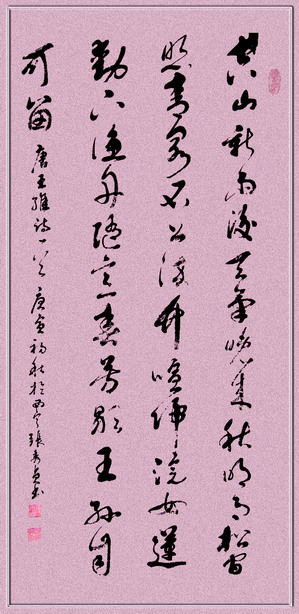 空山新雨後天氣晚來秋明月松間
照清泉石上流竹喧歸浣女蓮
動下漁舟隨意春芳歇王孫自
可留
唐王維詩一首 庚寅初秋於西 張秀 書